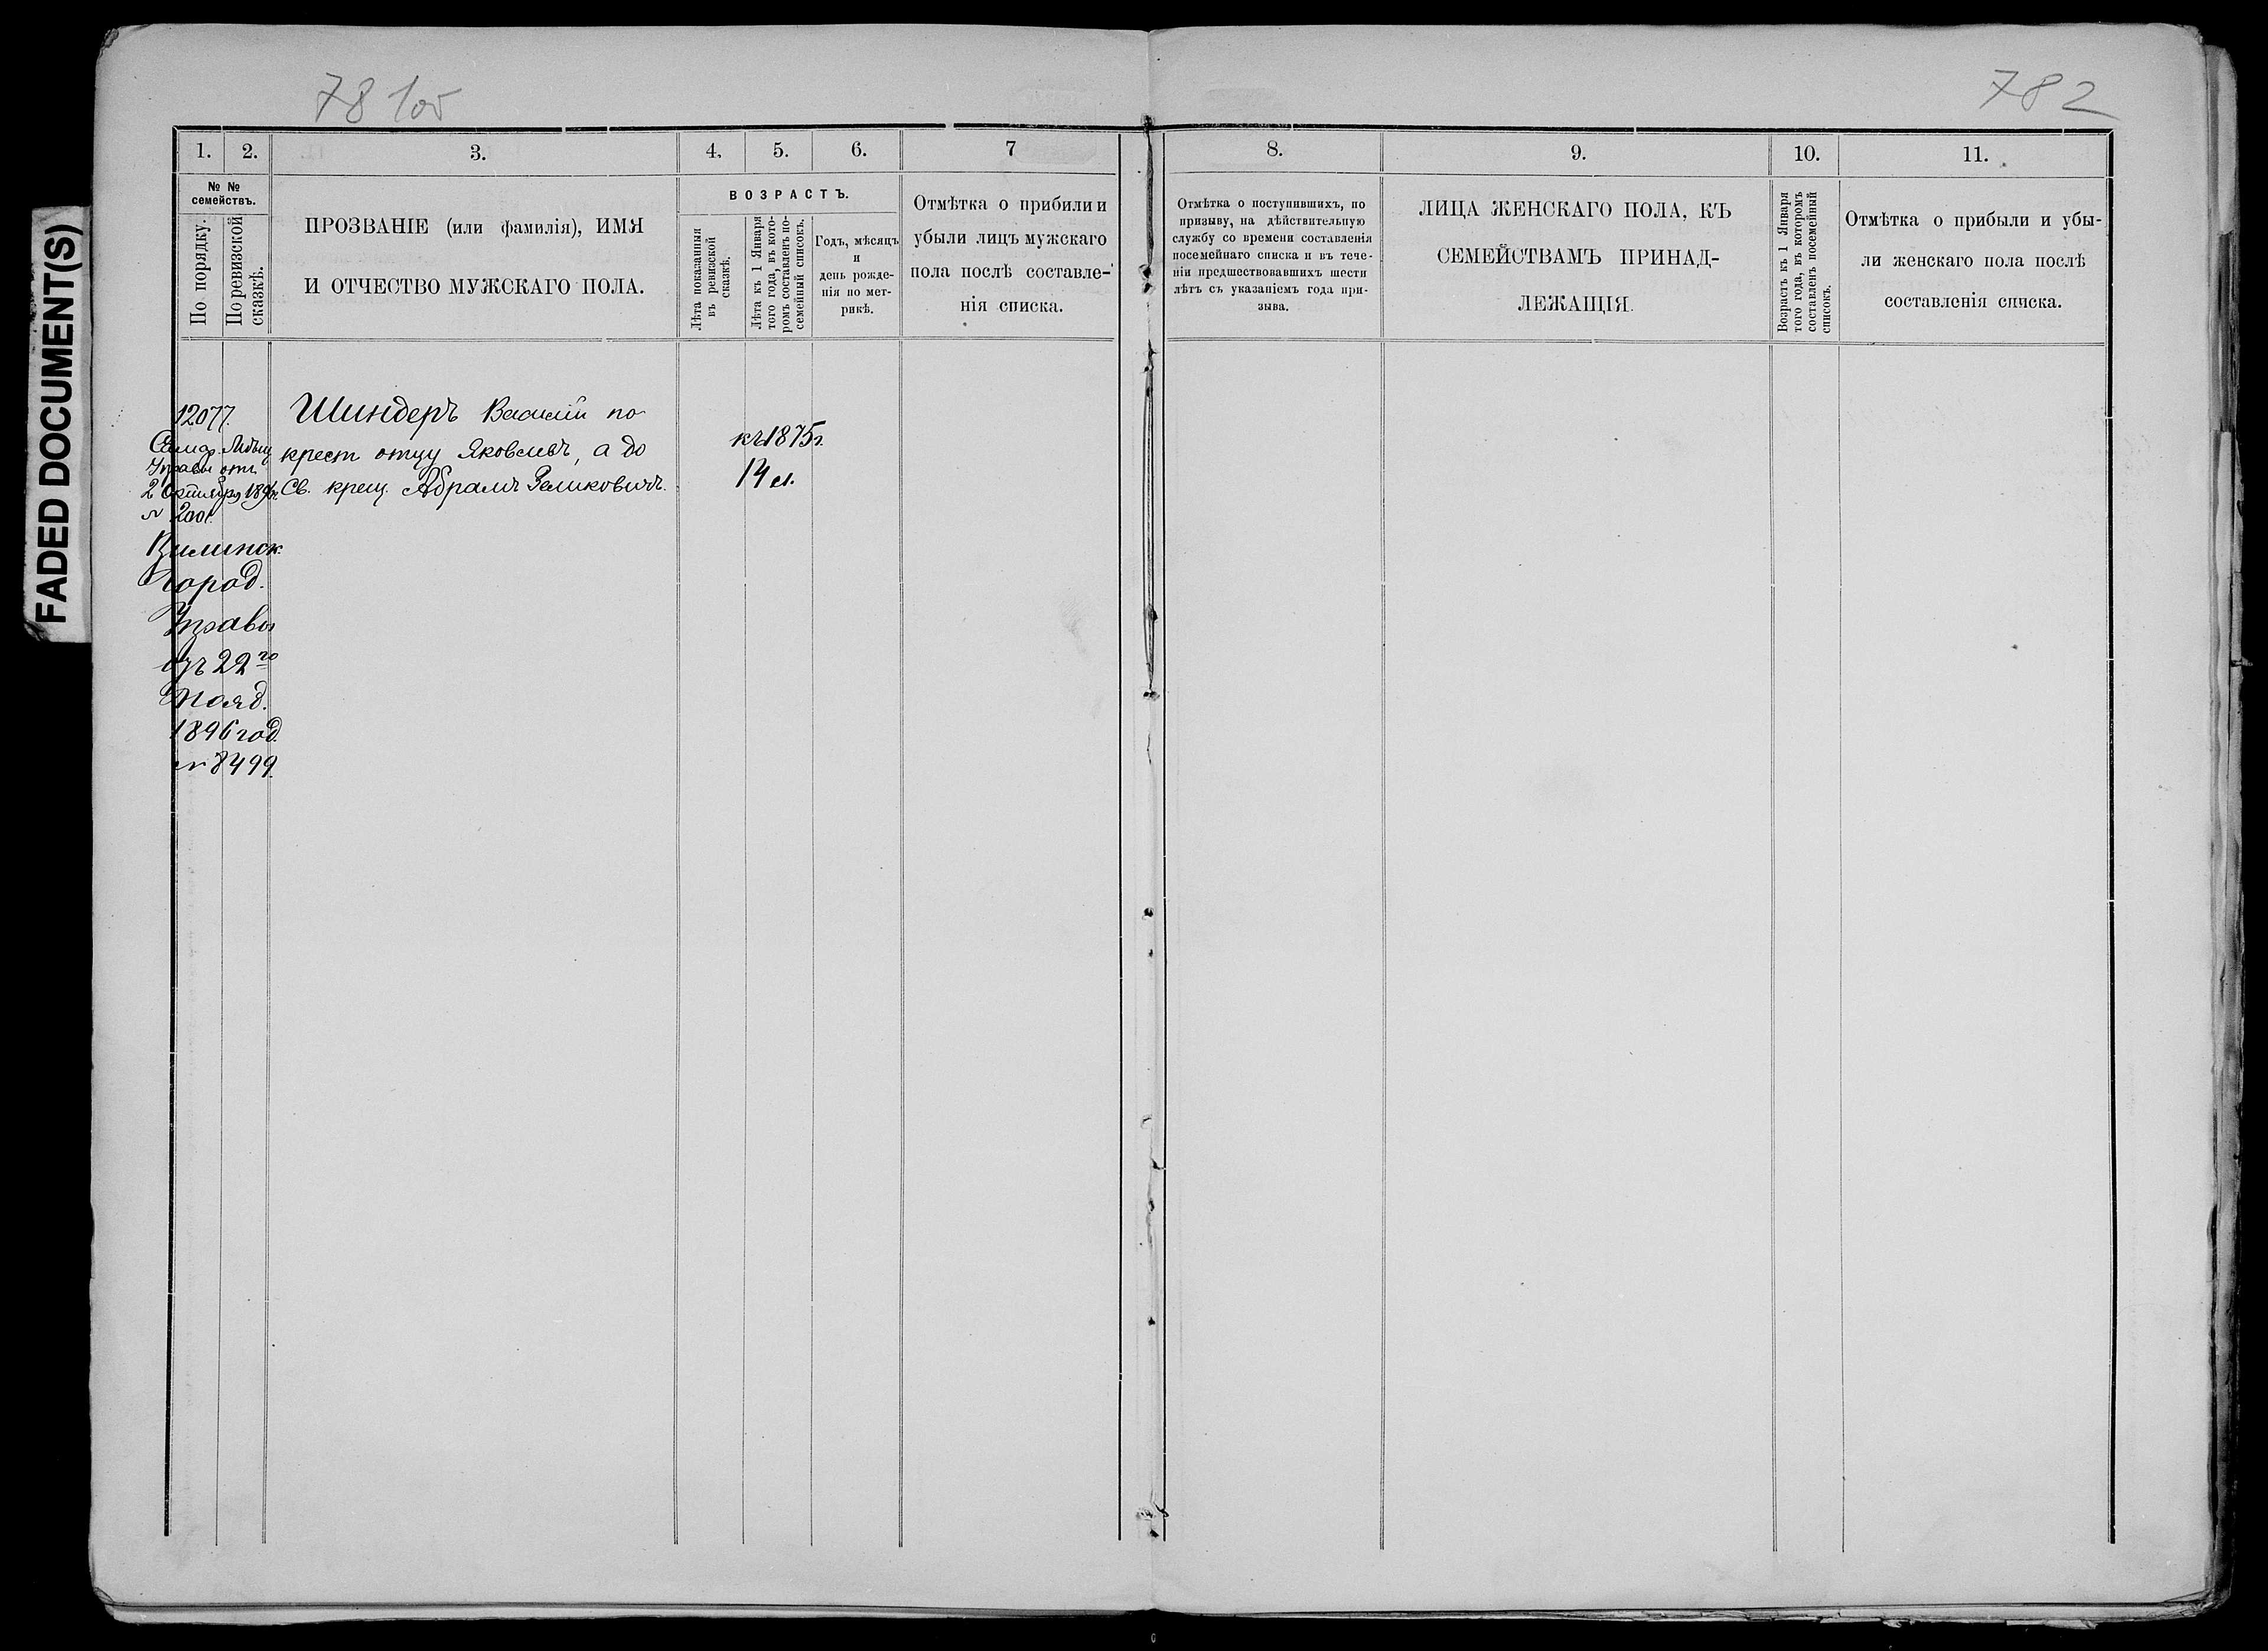 FADED DOCUMENT(S)
781об
782
1.
2.
3.
4.
5.
6.
7
8.
9.
10.
11.
№ №
семействъ.
По порядку.
По ревизской
сказкѣ.
ПРОЗВАНІЕ (или фамилія), ИМЯ
И ОТЧЕСТВО МУЖСКАГО ПОЛА.
ВОЗРАСТЪ.
Лѣта показанныя
въ ревизской
сказкѣ.
Лѣта къ 1 Января
того года, въ кото-
ромъ составленъ по-
семейный списокъ.
Годъ, мѣсяцъ
и
день рожде-
нія по мет-
рикѣ.
Отмѣтка о прибили и
убыли лицъ мужскаго
пола послѣ составле-
нія списка.
Отмѣтка о поступившихъ, по
призыву, на дѣйствительную
службу со времени составленія
посемейнаго списка и въ тече-
ніи предшествовавшихъ шести
лѣтъ съ указаніемъ года при-
зыва.
ЛИЦА ЖЕНСКАГО ПОЛА, КЪ
СЕМЕЙСТВАМЪ ПРИНАД-
ЛЕЖАЩІЯ.
Возрастъ къ 1 Января
того года, въ которомъ
составленъ посемейный
списокъ.
Отмѣтка о прибыли и убы-
ли женскаго пола послѣ
составленія списка.
12077.
Управы отъ
2 Октября
Виленск.
Город.
Управы
22го
1896 год.
№ 8499.
Шиндеръ Василій по
крест отцу Яковлевъ, а до
Св. крещ. Абрамъ Зеликовичъ.
къ 1875 г.
14 л.